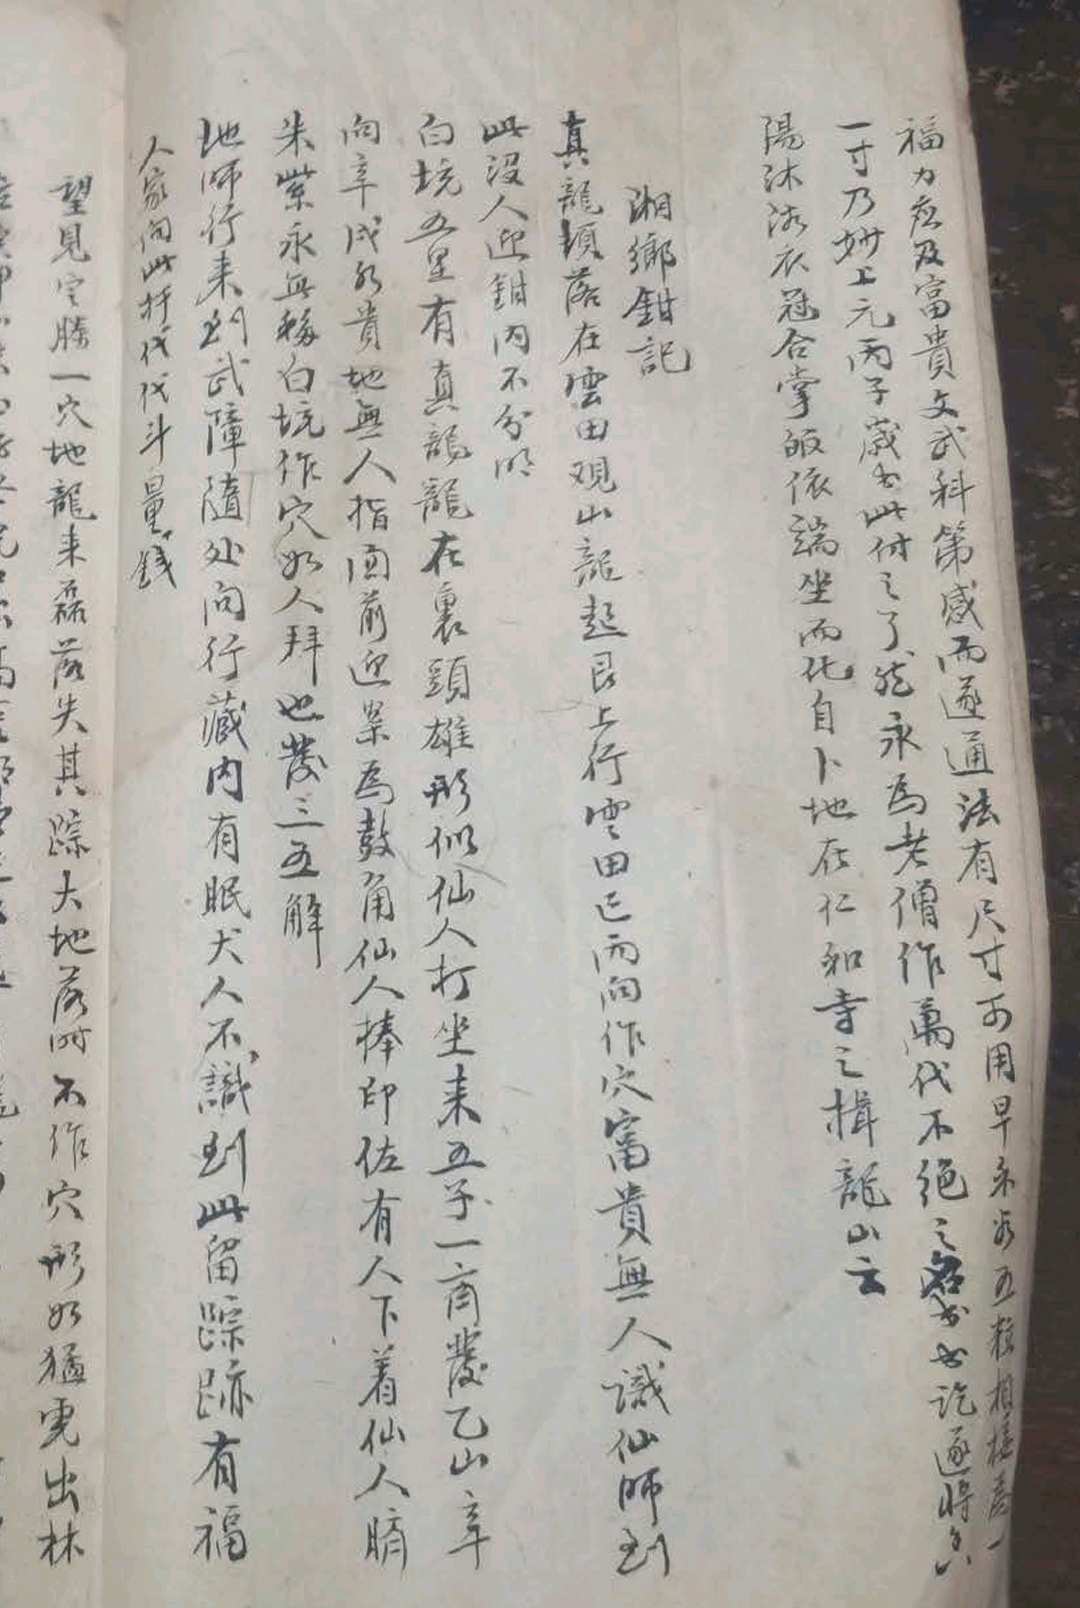 福力茲及富貴文武科第感而遂通法有尺寸可用早禾谷五粒相接為一
一寸乃妙上元丙子歲書此付之了然永為老僧作萬代不絕之書訖遂將
陽沐浴衣冠合掌皈依端坐而化自卜地在仁和寺之揖龍山云
湘鄉鉗記
真龍頓落在雲田覌山龍起艮上行雲田巳丙向作穴富貴無人識仙師到
此沒人迎鉗內不分明
白坑五里有真龍龍在裏頭雄形似仙人打坐来五子一齊發乙山辛
向辛戌水貴地無人指面前迎案為鼓角仙人捧印佐有人下着仙人臍
朱紫永無移白坑作穴如人拜也發三五解
地師行来到武障隨处问行藏内有眠犬人不識到此留踪跡有福
人家向此扦代代斗量錢
望見宝勝一穴地龍来磊落失其踪大地落时不作穴形如猛虎出林